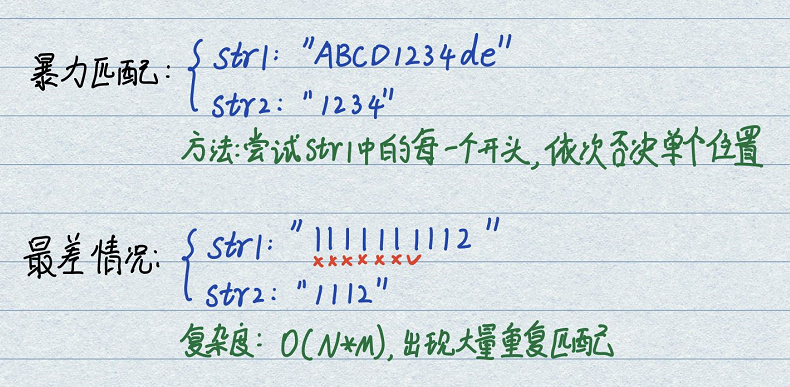 暴力匹配: { str1: "ABCD1234de"
str2: "1234"
方法:尝试str1中的每一个开头,依次否决单个位置
最差情况: { str1: "1111111112"
××××××✓
str2: "1112"
复杂度: O(N*M),出现大量重复匹配